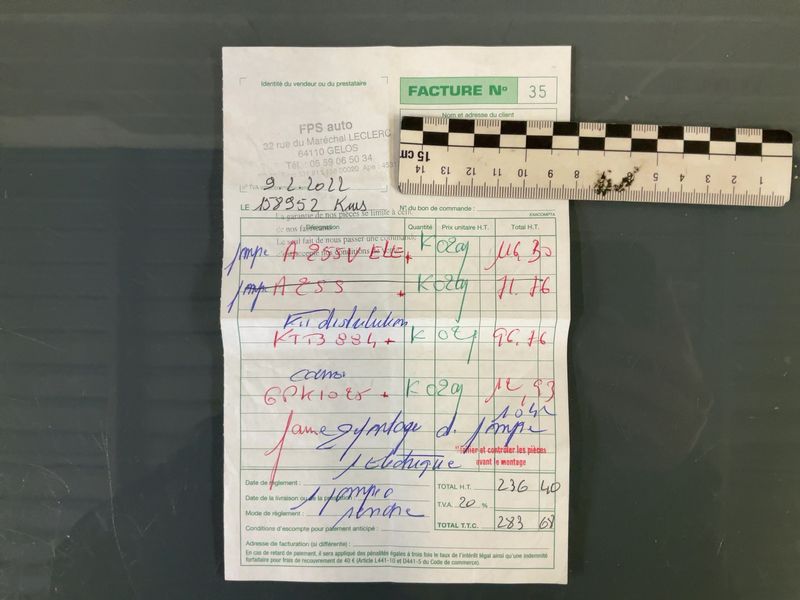 Identité du vendeur ou du prestataire
FACTURE N° 35
Nom et adresse du client
FPS auto
32 rue du Maréchal LECLERC
64110 GELOS
Tél. : 05 59 06 50 34
9.2.2022
LE 158952 Kms
N° du bon de commande :
EXACOMPTA
La garantie de nos pièces se limite à celle
de nos
Le seul fait de nous passer une commande
Désignation Quantité Prix unitaire H.T. Total H.T.
pompe A255V-ELE + K 029 116,30
pompe A255 + K 029 71.76
Kit distribution
KTB 884 + K 029 96.76
6PK1025 + K 029 12,93
1042
pompe
électrique
Vérifier et contrôler les pièces
avant le montage
Date de règlement :
Date de la livraison ou de la prestation :
1 pompe
Mode de règlement :
rendre
Conditions d'escompte pour paiement anticipé :
TOTAL H.T. 236 40
T.V.A. 20 %
TOTAL T.T.C. 283 68
Adresse de facturation (si différente) :
En cas de retard de paiement, il sera appliqué des pénalités égales à trois fois le taux de l'intérêt légal ainsi qu'une indemnité
forfaitaire pour frais de recouvrement de 40 € (Article L441-10 et D441-5 du Code de commerce).
15 cm
14 13 12 11 10 9 8 7 6 5 4 3 2 1